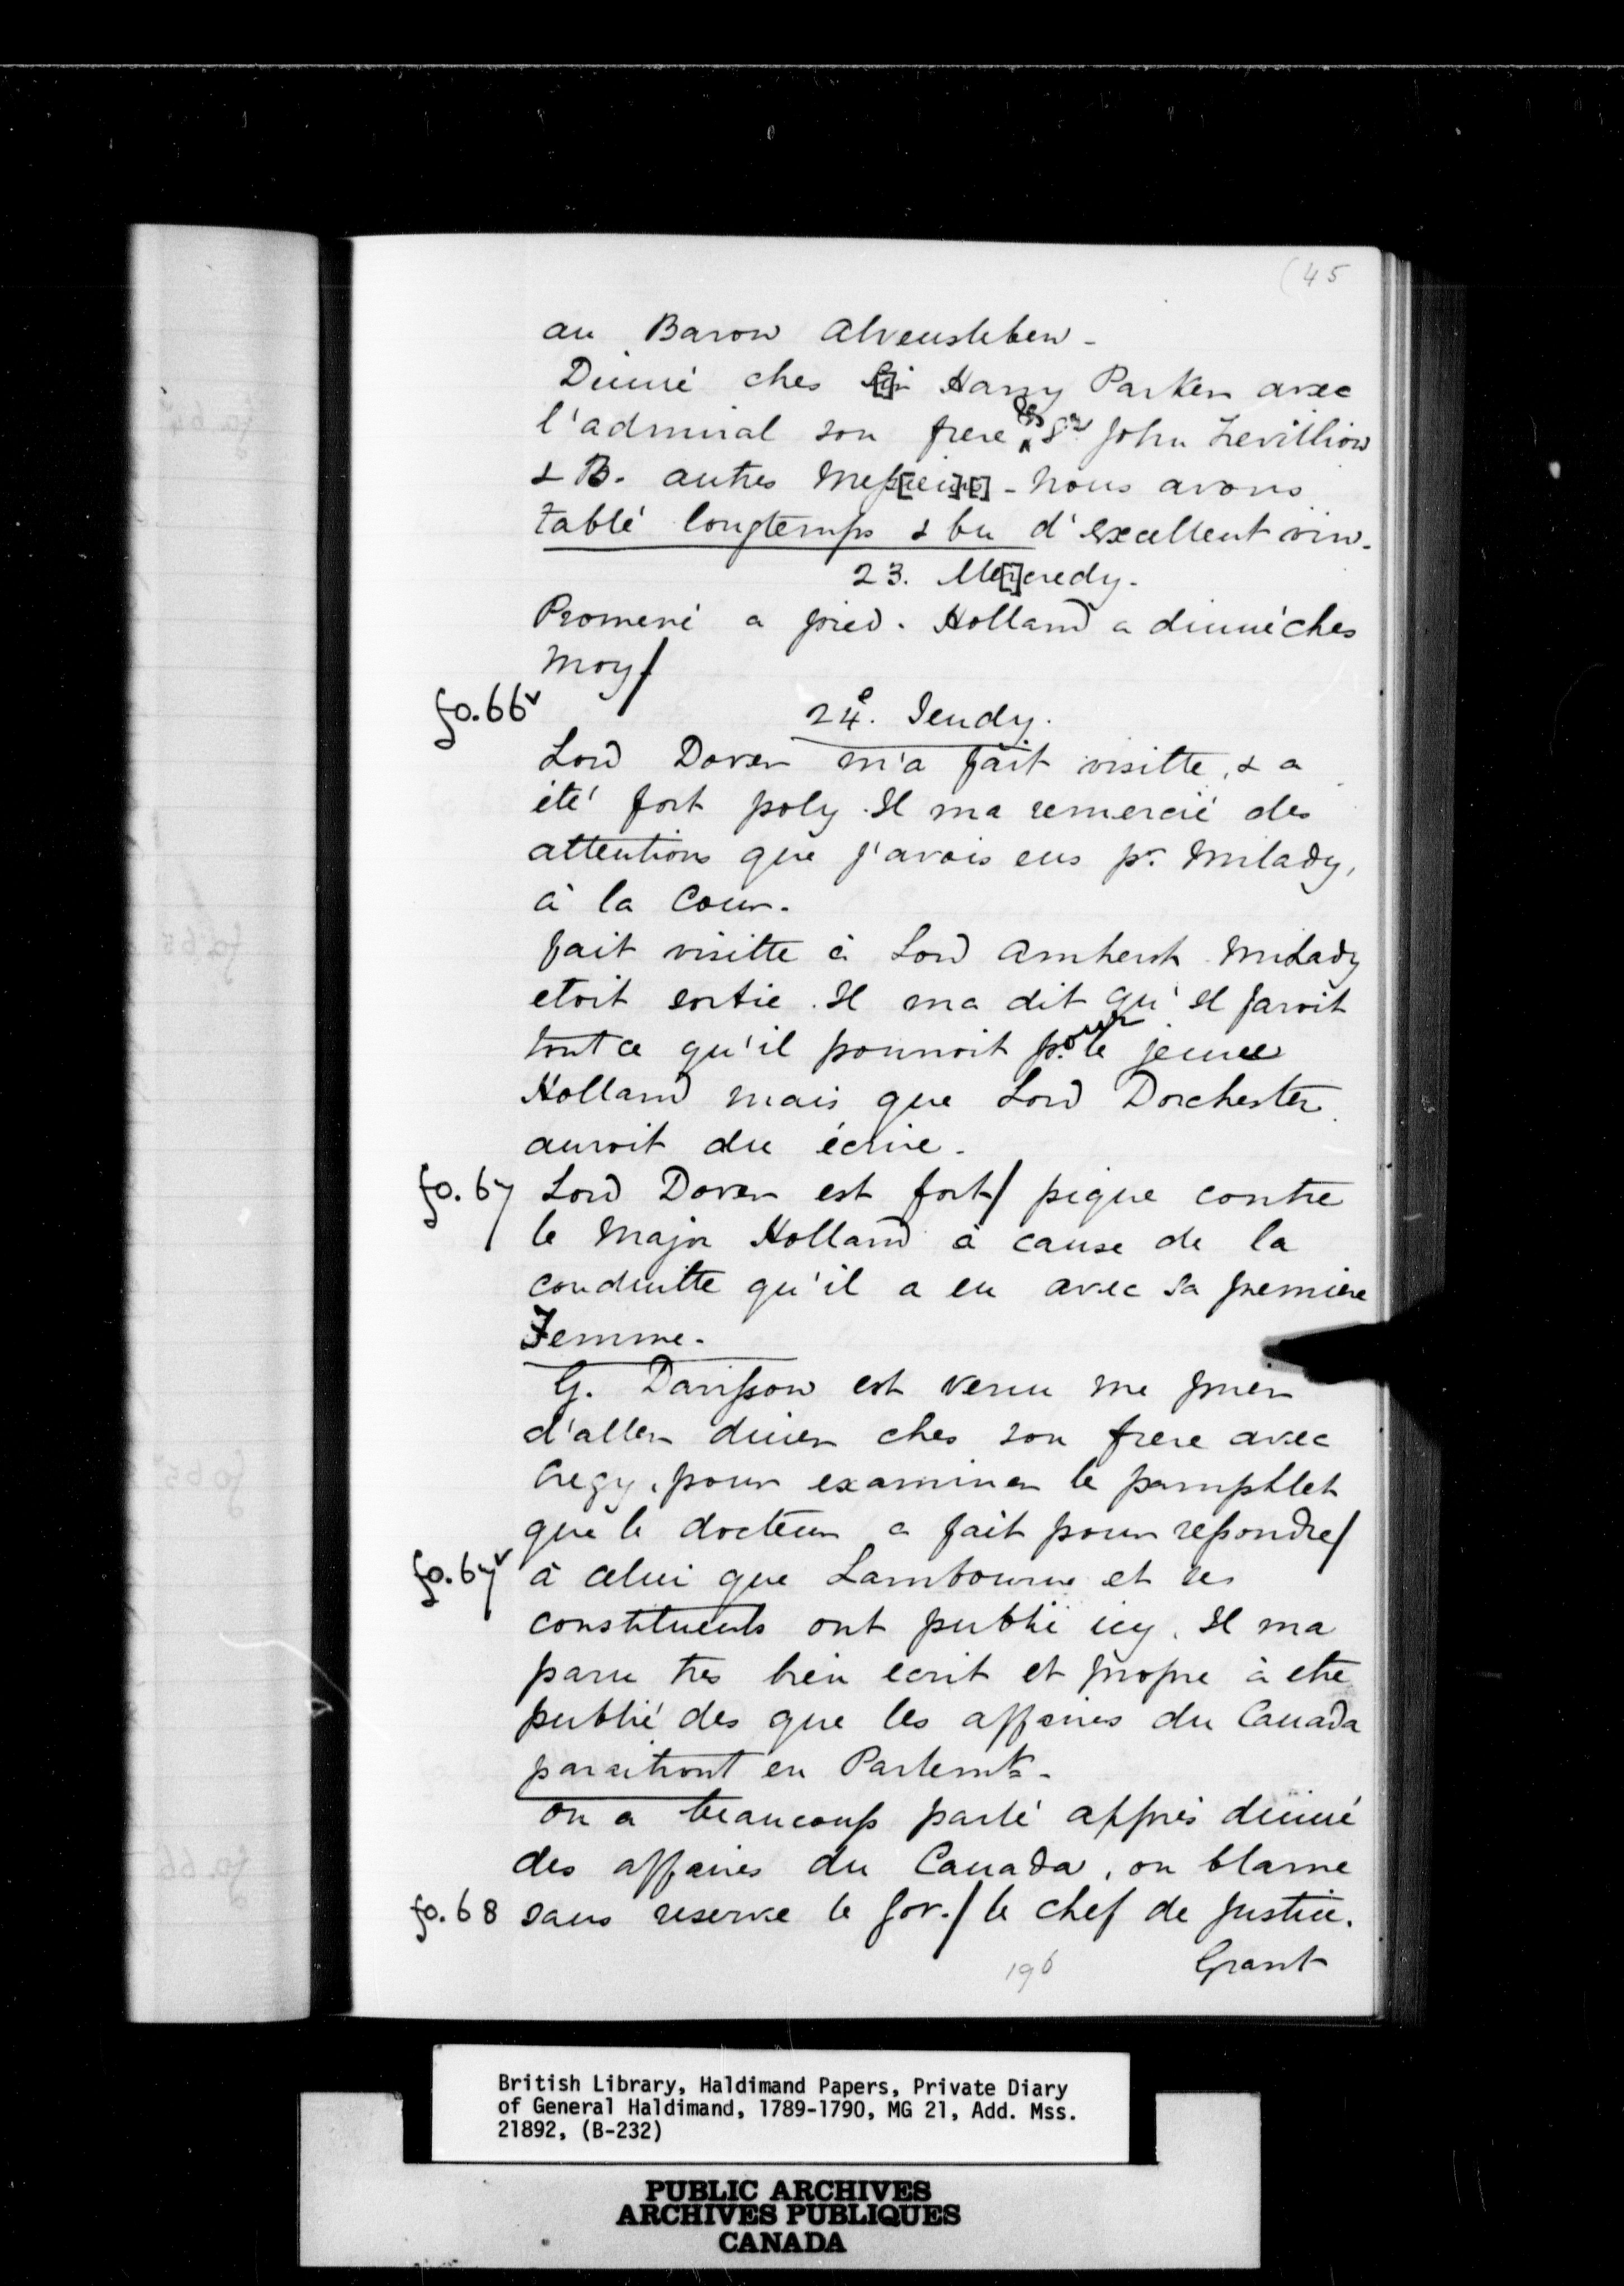 (45
au Baron Alvensleben -
Dinné ches [Sir] Harry Parker avec
l'admiral son frere & Sr. John Trevillion
& B. autres Mess[ieurs] - Nous avons
tablé longtemps & bu d'excellent vin.
23. Me[r]credy.
Promené a pied. Holland a dinné ches
Moy/
fo. 66v
24e. Jeudy.
Lord Dover m'a fait visitte, & a
été fort poly. Il ma remercié des
attentions que j'avois eus pr. Milady,
à la Cour.
fait visitte à Lord Amherst Milady
etoit sortie. Il ma dit qu'Il faroit
tout ce qu'il pouroit pour le jeune
Holland mais que Lord Dorchester
auroit du écrire.
fo. 67 Lord Dover est fort/ pique contre
le Major Holland à cause de la
conduitte qu'il a eu avec sa premiere
Femme.
G. Davisson est venu me prier
d'aller diner ches son frere avec
Cregy, pour examiner le pamphlet
que le docteur a fait pour repondre/
fo. 67v à celui que Lambourne et ses
constituents ont publié icy. Il ma
paru tres bien ecrit et propre à etre
publié des que les affaires du Canada
paraitront en Parlemt. -
on a beaucoup parlé apprés dinné
des affaires du Canada, on blame
fo. 68 sans reserve le Gov./ le chef de Justice.
Grant
196
British Library, Haldimand Papers, Private Diary
of General Haldimand, 1789-1790, MG 21, Add. Mss.
21892, (B-232)
PUBLIC ARCHIVES
ARCHIVES PUBLIQUES
CANADA